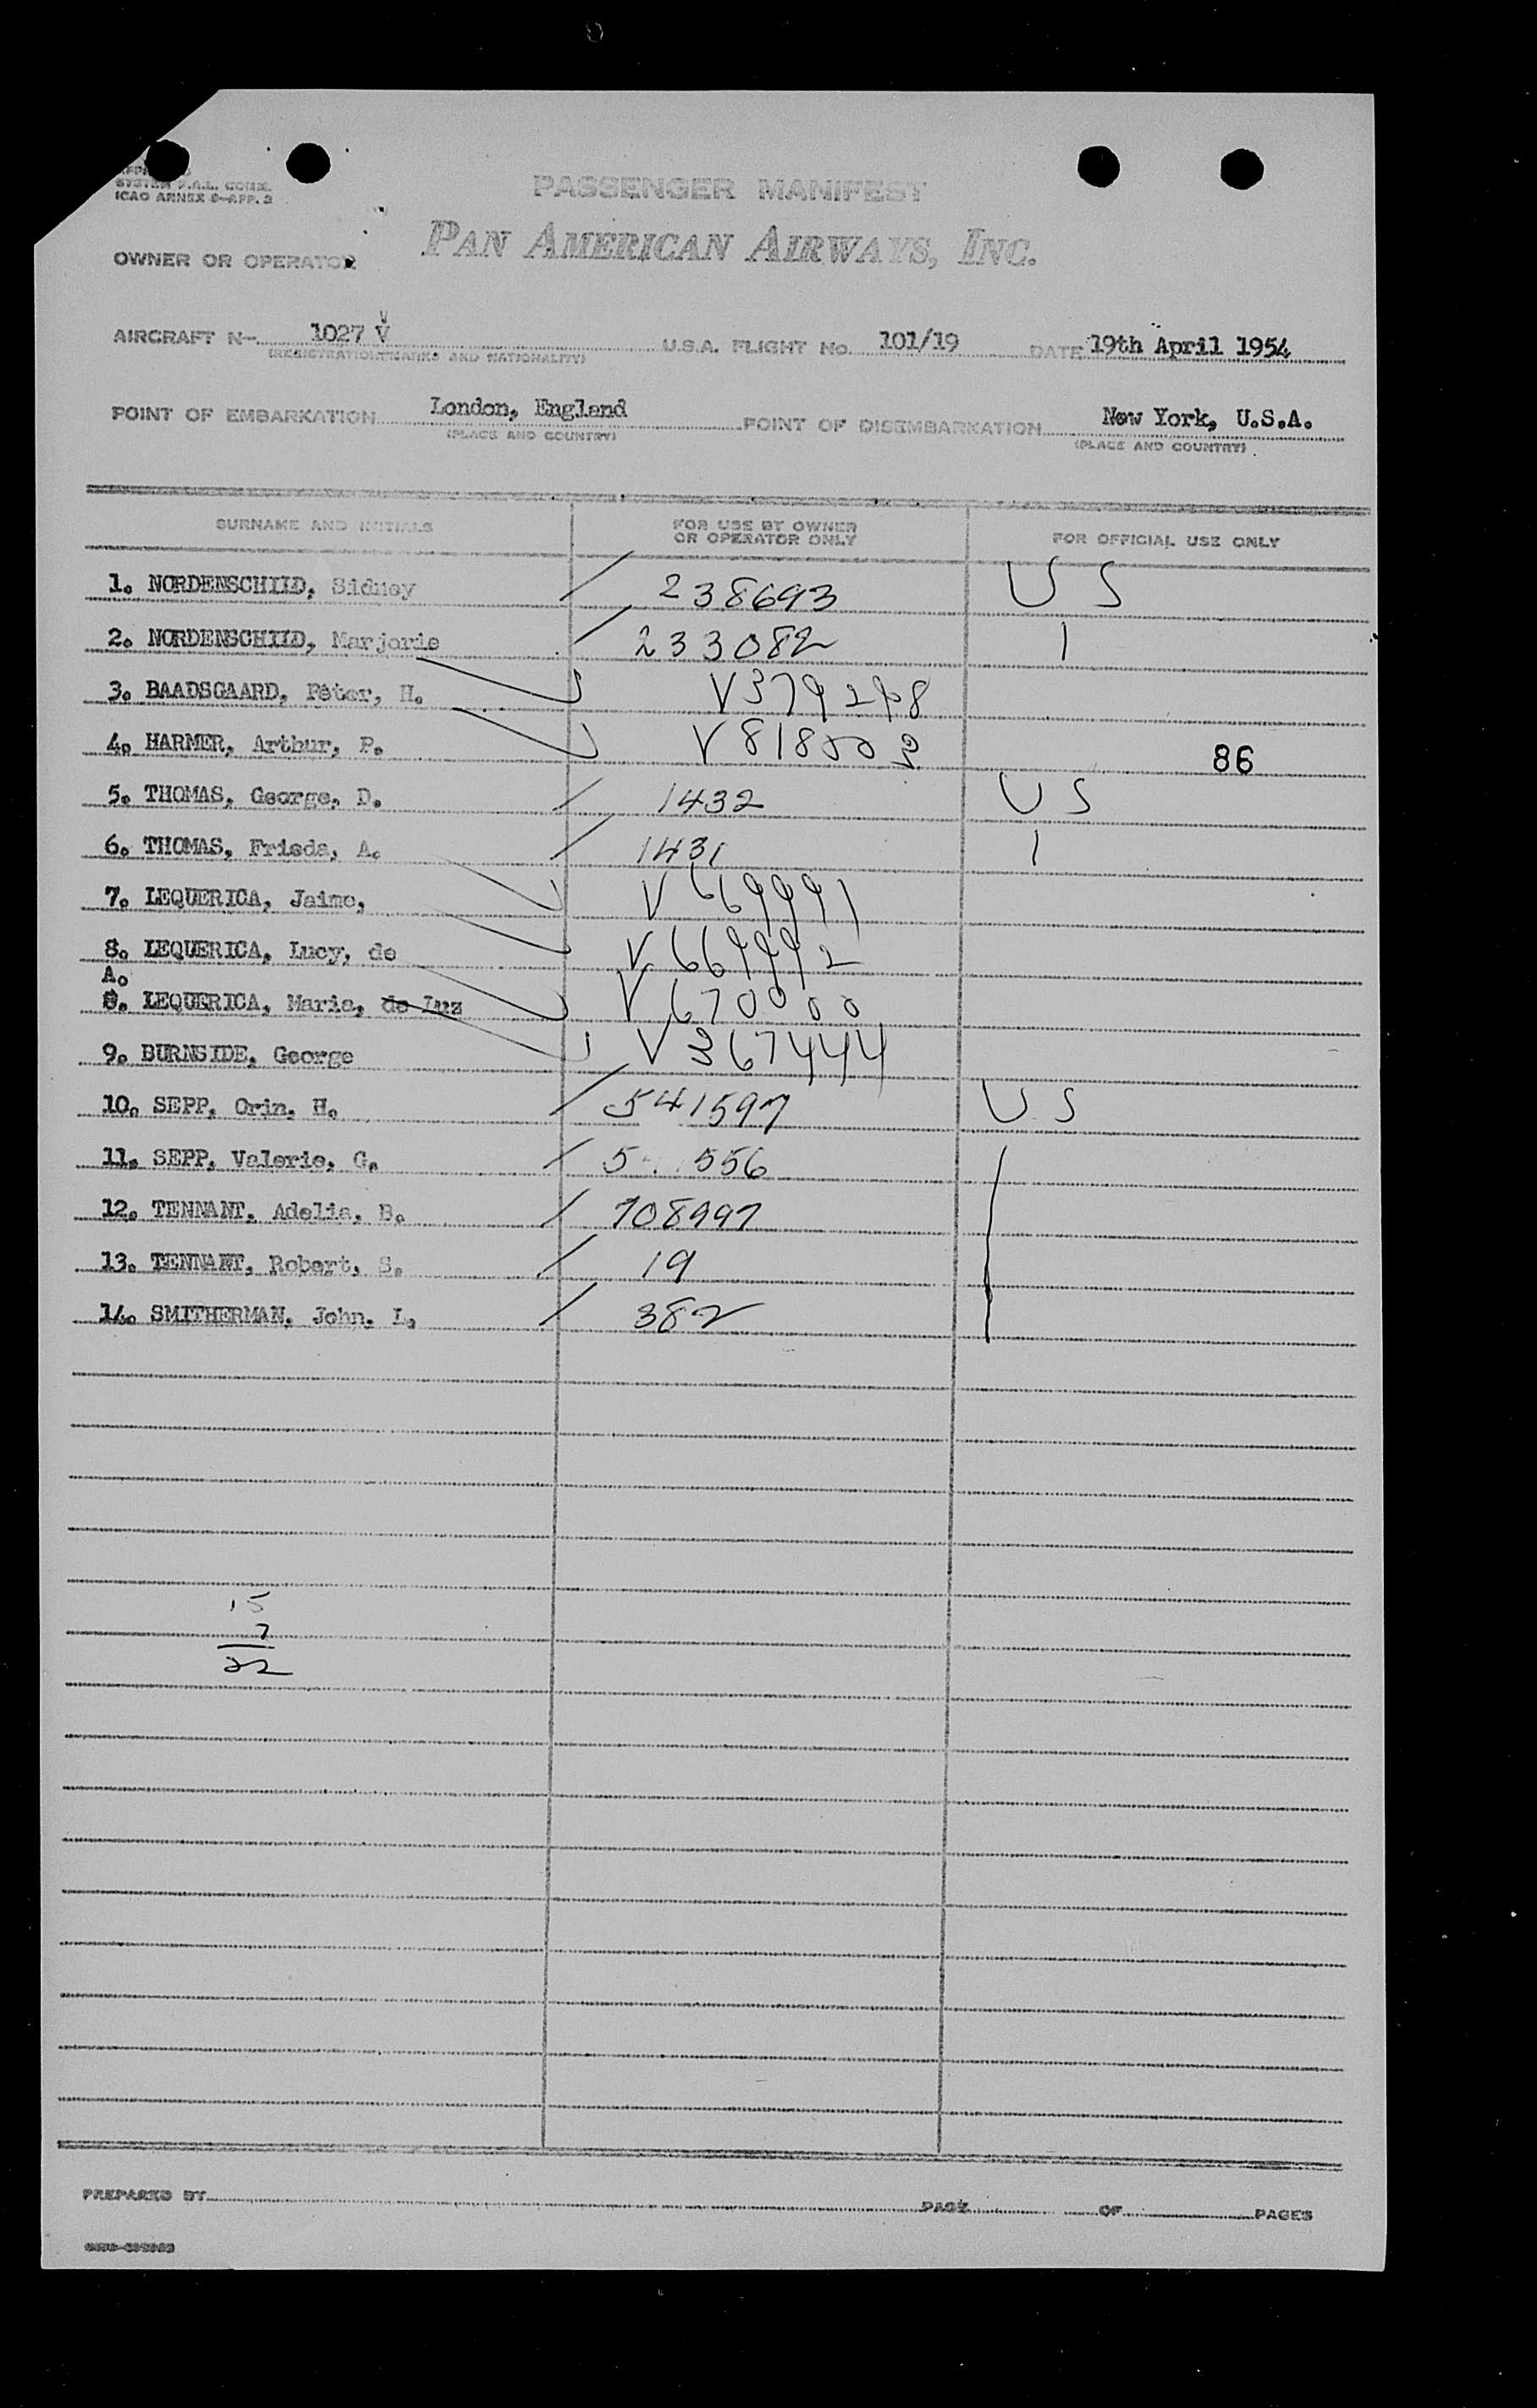 SYSTEM F.A.L. COMM.
ICAO ANNEX 9-APP. 3
PASSENGER MANIFEST
OWNER OR OPERATOR PAN AMERICAN AIRWAYS, INC.
AIRCRAFT N- 1027 V U.S.A. FLIGHT No. 101/19 DATE 19th April 1954
(REGISTRATION MARKS AND NATIONALITY)
POINT OF EMBARKATION London, England POINT OF DISEMBARKATION New York, U.S.A.
(PLACE AND COUNTRY) (PLACE AND COUNTRY)
SURNAME AND INITIALS FOR USE BY OWNER OR OPERATOR ONLY FOR OFFICIAL USE ONLY
1. NORDENSCHILD, Sidney / 238693 U S
2. NORDENSCHILD, Marjorie / 233082 |
3. BAADSGAARD, Peter, H. V379298
4. HARMER, Arthur, P. 86
5. THOMAS, George, D. / 1432 U S
6. THOMAS, Frieda, A. / 1431 |
7. LEQUERICA, Jaime, V 669991
8. LEQUERICA, Lucy, de V 669992
A.
8. LEQUERICA, Maria, de Luz V 670000
9. BURNSIDE, George V 367444
10. SEPP, Orin, H. / 541597 U S
11. SEPP, Valerie, G. / 5 556
12. TENNANT, Adelia, B. / 708997
13. TENNANT, Robert, S. / 19
14. SMITHERMAN, John, L. / 382
15
7
22
PREPARED BY PAGE OF PAGES